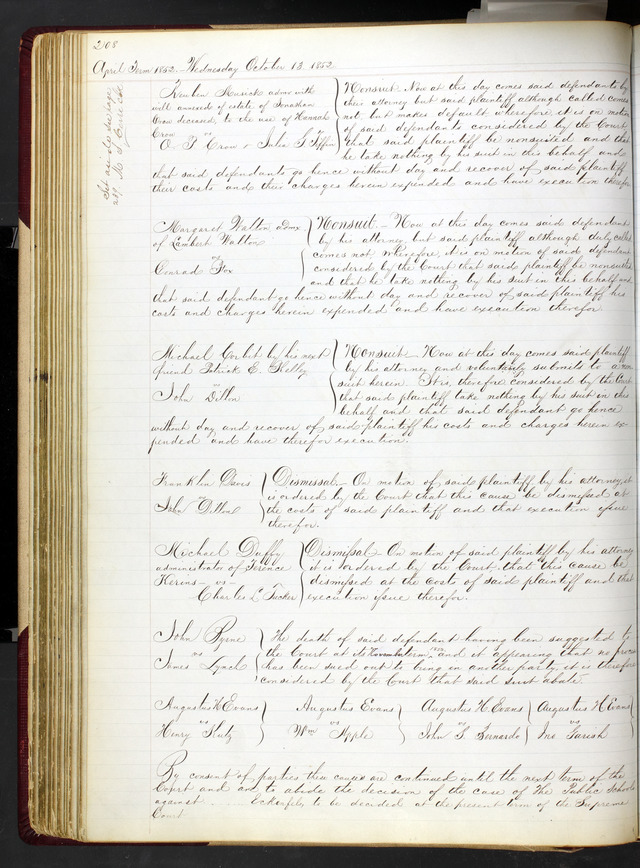 208
April Term 1852. Wednesday October 13. 1852
Reuben Musick admr with
will annexed of estate of Jonathan
Crow deceased, to the use of Hannah
Crow
vs
O. F. Crow & Julia F.
Nonsuit. Now at this day comes said defendants by
their attorney but said plaintiff although called comes
not but makes default wherefore it is on motion
of said defendants considered by the Court
that said plaintiff be nonsuited and that
he take nothing by his suit in this behalf and
that said defendants go hence without day and recover of said plaintiff
their costs and their charges herein expended and have execution therefor
Set aside
289
Margaret Walton admx.
of Lambert Walton
vs
Conrad Fox
Nonsuit – Now at this day comes said defendant
by his attorney but said plaintiff although duly called
comes not wherefore it is on motion of said defendant
considered by the Court that said plaintiff be nonsuited
and that he take nothing by his suit in this behalf and
that said defendant go hence without day and recover of said plaintiff his
costs and charges herein expended and have execution therefor
Michael Corbit by his next
friend Patrick E. Kelley
vs
John Dillon
Nonsuit – Now at this day comes said plaintiff
by his attorney and voluntarily submits to a non
suit herein. It is therefore considered by the Court
that said plaintiff take nothing by his suit in this
behalf and that said defendant go hence
without day and recover of said plaintiff his costs and charges herein ex-
pended and have therefor execution.
Franklin Davis
vs
John Dillon
Dismissal – On motion of said plaintiff by his attorney it
is ordered by the Court that this cause be dismissed at
the costs of said plaintiff and that execution issue
therefor.
Michael Duffy
administrator of Terence
Kerins – vs –
Charles L. Tucker
Dismissal On motion of said plaintiff by his attorney
it is ordered by the Court that this cause be
dismissed at the costs of said plaintiff and that
execution issue therefor.
John Byrne
vs
James Lynch
The death of said defendant having been suggested to
the Court at its November term and it appearing that no process
has been sued out to bring in another party, it is therefore
considered by the Court that said suit abate.
Augustus H Evans
vs
Henry Kutz
Augustus Evans
vs
Wm Apple
Augustus H Evans
vs
John F Bernardo
Augustus H Evans
vs
Jno Parish
By consent of parties these causes are continued until the next term of the
Court and are to abide the decision of the case of The Public Schools
against to be decided at the present term of the Supreme
Court